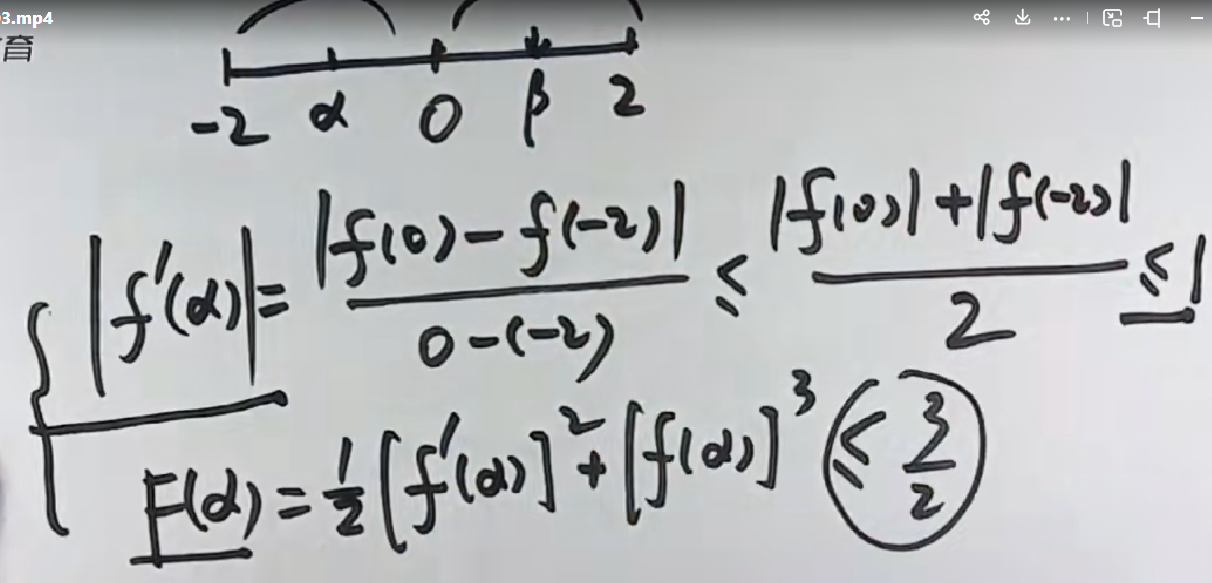 3.mp4
育
-2 α 0 β 2
|f'(α)| = |f(0) - f(-2)| / 0-(-2) ≤ |f(0)| + |f(-2)| / 2 ≤ 1
F(α) = 1/2 [f'(α)]² + [f(α)]³ ≤ 3/2